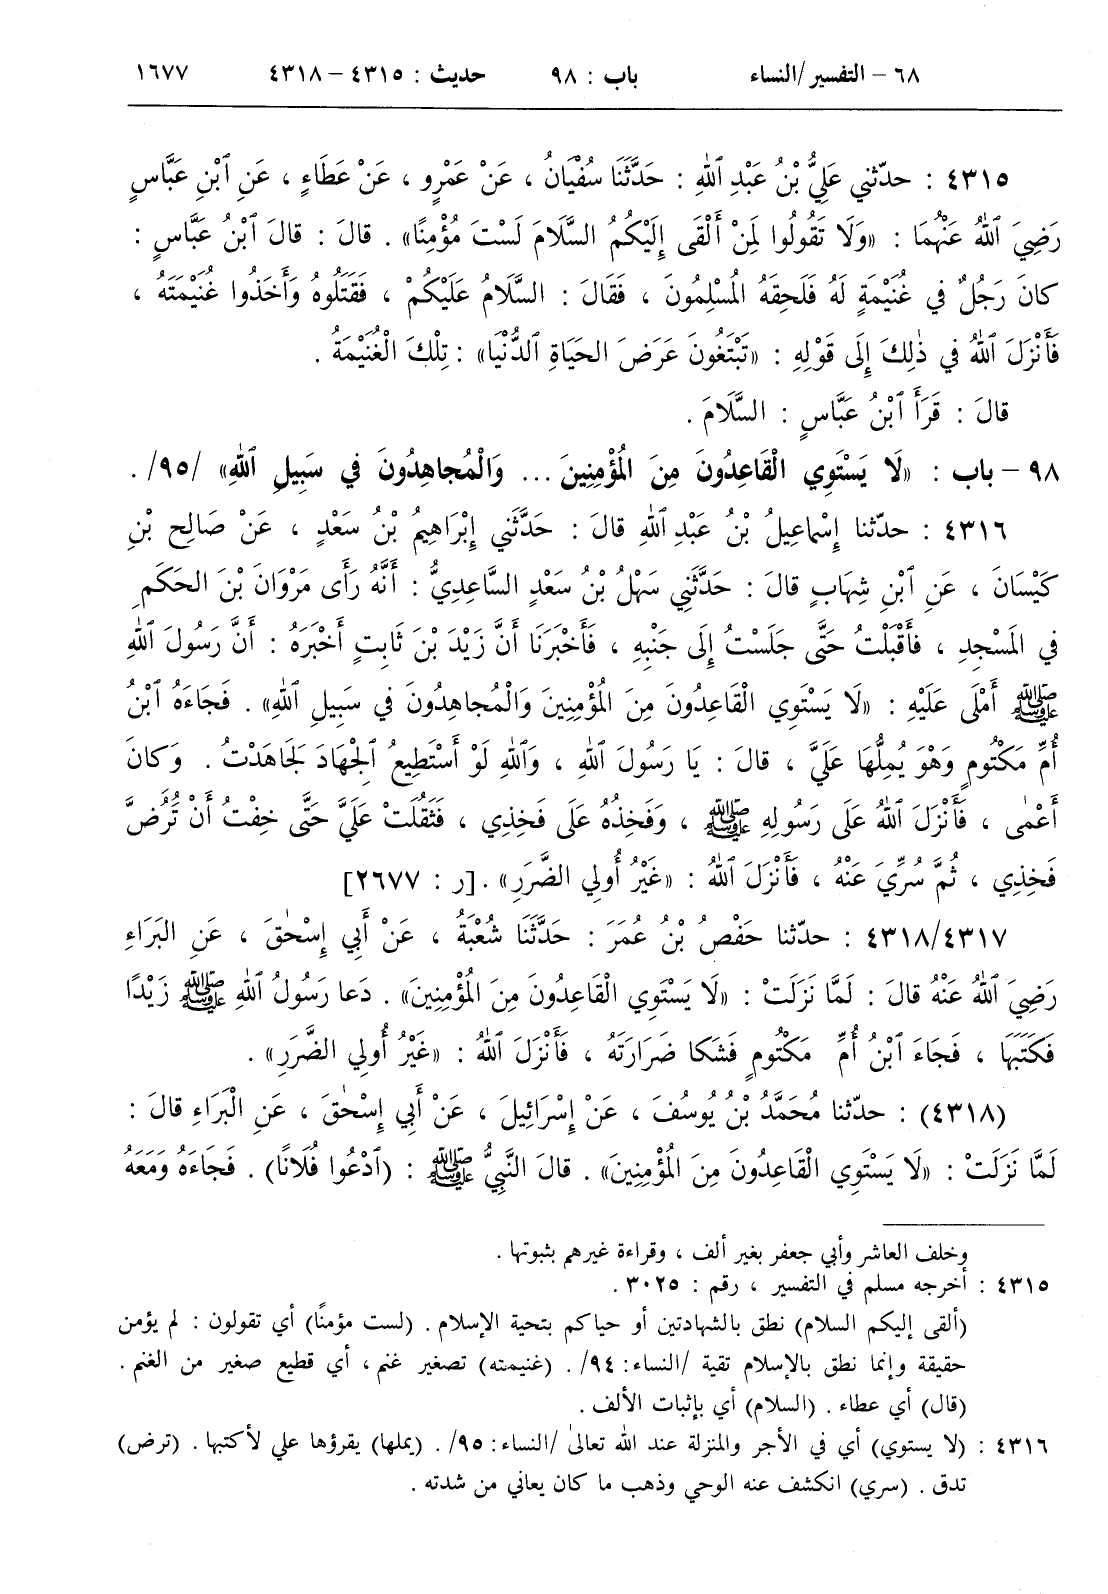 ٦٨ – التفسير/النساء باب : ٩٨ حديث : ٤٣١٥ – ٤٣١٨ ١٦٧٧
٤٣١٥ : حدّثني عَلِيُّ بْنُ عَبْدِ ٱللهِ : حَدَّثَنَا سُفْيَانُ ، عَنْ عَمْرٍو ، عَنْ عَطَاءٍ ، عَنِ ٱبْنِ عَبَّاسٍ
رَضِيَ ٱللهُ عَنْهُمَا : «وَلَا تَقُولُوا لِمَنْ أَلْقَى إِلَيْكُمُ السَّلَامَ لَسْتَ مُؤْمِنًا» . قالَ : قالَ ٱبْنُ عَبَّاسٍ :
كانَ رَجُلٌ في غُنَيْمَةٍ لَهُ فَلَحِقَهُ المُسْلِمُونَ ، فَقَالَ : السَّلَامُ عَلَيْكُمْ ، فَقَتَلُوهُ وَأَخَذُوا غُنَيْمَتَهُ ،
فَأَنْزَلَ ٱللهُ في ذٰلِكَ إِلَى قَوْلِهِ : «تَبْتَغُونَ عَرَضَ الحَيَاةِ ٱلدُّنْيَا» : تِلْكَ الْغُنَيْمَةُ .
قالَ : قَرَأَ ٱبْنُ عَبَّاسٍ : السَّلَامَ .
٩٨ – باب : «لَا يَسْتَوِي الْقَاعِدُونَ مِنَ المُؤْمِنِينَ ... وَالْمُجاهِدُونَ في سَبِيلِ ٱللهِ» /٩٥/ .
٤٣١٦ : حدّثنا إِسْماعِيلُ بْنُ عَبْدِ ٱللهِ قالَ : حَدَّثَنِي إِبْرَاهِيمُ بْنُ سَعْدٍ ، عَنْ صَالِحِ بْنِ
كَيْسَانَ ، عَنِ ٱبْنِ شِهَابٍ قالَ : حَدَّثَنِي سَهْلُ بْنُ سَعْدٍ السَّاعِدِيُّ : أَنَّهُ رَأَى مَرْوَانَ بْنَ الحَكَمِ
في المَسْجِدِ ، فَأَقْبَلْتُ حَتَّى جَلَسْتُ إِلَى جَنْبِهِ ، فَأَخْبَرَنَا أَنَّ زَيْدَ بْنَ ثَابِتٍ أَخْبَرَهُ : أَنَّ رَسُولَ ٱللهِ
ﷺ أَمْلَى عَلَيْهِ : «لَا يَسْتَوِي الْقَاعِدُونَ مِنَ المُؤْمِنِينَ وَالْمُجاهِدُونَ في سَبِيلِ ٱللهِ» . فَجَاءَهُ ٱبْنُ
أُمِّ مَكْتُومٍ وَهْوَ يُمِلُّهَا عَلَيَّ ، قالَ : يَا رَسُولَ ٱللهِ ، وَٱللهِ لَوْ أَسْتَطِيعُ ٱلْجِهَادَ لَجَاهَدْتُ . وَكانَ
أَعْمٰى ، فَأَنْزَلَ ٱللهُ عَلَى رَسُولِهِ ﷺ ، وَفَخِذُهُ عَلَى فَخِذِي ، فَثَقُلَتْ عَلَيَّ حَتَّى خِفْتُ أَنْ تُرَضَّ
فَخِذِي ، ثُمَّ سُرِّيَ عَنْهُ ، فَأَنْزَلَ ٱللهُ : «غَيْرُ أُولِي الضَّرَرِ» . [ر : ٢٦٧٧]
٤٣١٨/٤٣١٧ : حدّثنا حَفْصُ بْنُ عُمَرَ : حَدَّثَنَا شُعْبَةُ ، عَنْ أَبِي إِسْحٰقَ ، عَنِ البَرَاءِ
رَضِيَ ٱللهُ عَنْهُ قالَ : لَمَّا نَزَلَتْ : «لَا يَسْتَوِي الْقَاعِدُونَ مِنَ المُؤْمِنِينَ» . دَعا رَسُولُ ٱللهِ ﷺ زَيْدًا
فَكَتَبَهَا ، فَجَاءَ ٱبْنُ أُمِّ مَكْتُومٍ فَشَكا ضَرَارَتَهُ ، فَأَنْزَلَ ٱللهُ : «غَيْرُ أُولِي الضَّرَرِ» .
(٤٣١٨) : حدّثنا مُحَمَّدُ بْنُ يُوسُفَ ، عَنْ إِسْرَائِيلَ ، عَنْ أَبِي إِسْحٰقَ ، عَنِ الْبَرَاءِ قالَ :
لَمَّا نَزَلَتْ : «لَا يَسْتَوِي الْقَاعِدُونَ مِنَ المُؤْمِنِينَ» . قالَ النَّبِيُّ ﷺ : (ٱدْعُوا فُلَانًا) . فَجَاءَهُ وَمَعَهُ
وخلف العاشر وأبي جعفر بغير ألف ، وقراءة غيرهم بثبوتها .
٤٣١٥ : أخرجه مسلم في التفسير ، رقم : ٣٠٢٥ .
(ألقى إليكم السلام) نطق بالشهادتين أو حياكم بتحية الإسلام . (لست مؤمنًا) أي تقولون : لم يؤمن
حقيقة وإنما نطق بالإسلام تقية /النساء: ٩٤/ . (غنيمته) تصغير غنم ، أي قطيع صغير من الغنم .
(قال) أي عطاء . (السلام) أي بإثبات الألف .
٤٣١٦ : (لا يستوي) أي في الأجر والمنزلة عند الله تعالىٰ /النساء: ٩٥/ . (يملها) يقرؤها علي لأكتبها . (ترض)
تدق . (سري) انكشف عنه الوحي وذهب ما كان يعاني من شدته .